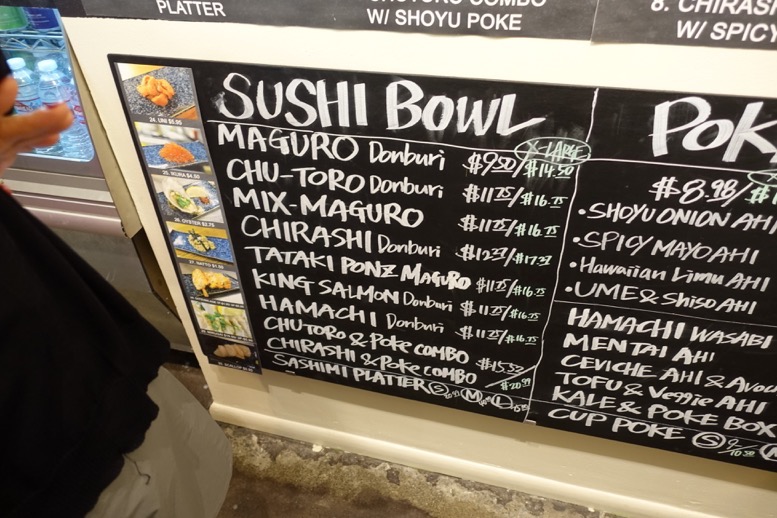 PLATTER
W/ SHOYU POKE
W/ SPICY
24. UNI $5.00
25. IKURA $4.50
26. OYSTER $2.75
27. NATTO $1.50
SUSHI BOWL
X-LARGE
MAGURO Donburi $9.50/$14.50
CHU-TORO Donburi $11.75/$16.75
MIX-MAGURO $11.75/$16.75
CHIRASHI Donburi
TATAKI PONZ MAGURO $11.75/$16.75
KING SALMON Donburi $11.75/$16.75
HAMACHI Donburi $11.75/$16.75
CHUTORO & POKE COMBO $15.50
CHIRASHI & POKE COMBO $20.99
SASHIMI PLATTER S M L
POK
$8.98/
• SHOYU ONION AHI
• SPICY MAYO AHI
• Hawaiian Limu AHI
• UME & Shiso AHI
HAMACHI WASABI
MENTAI AHI
CEVICHE AHI & Avoc
TOFU & Veggie AHI
KALE & POKE BOX
CUP POKE S